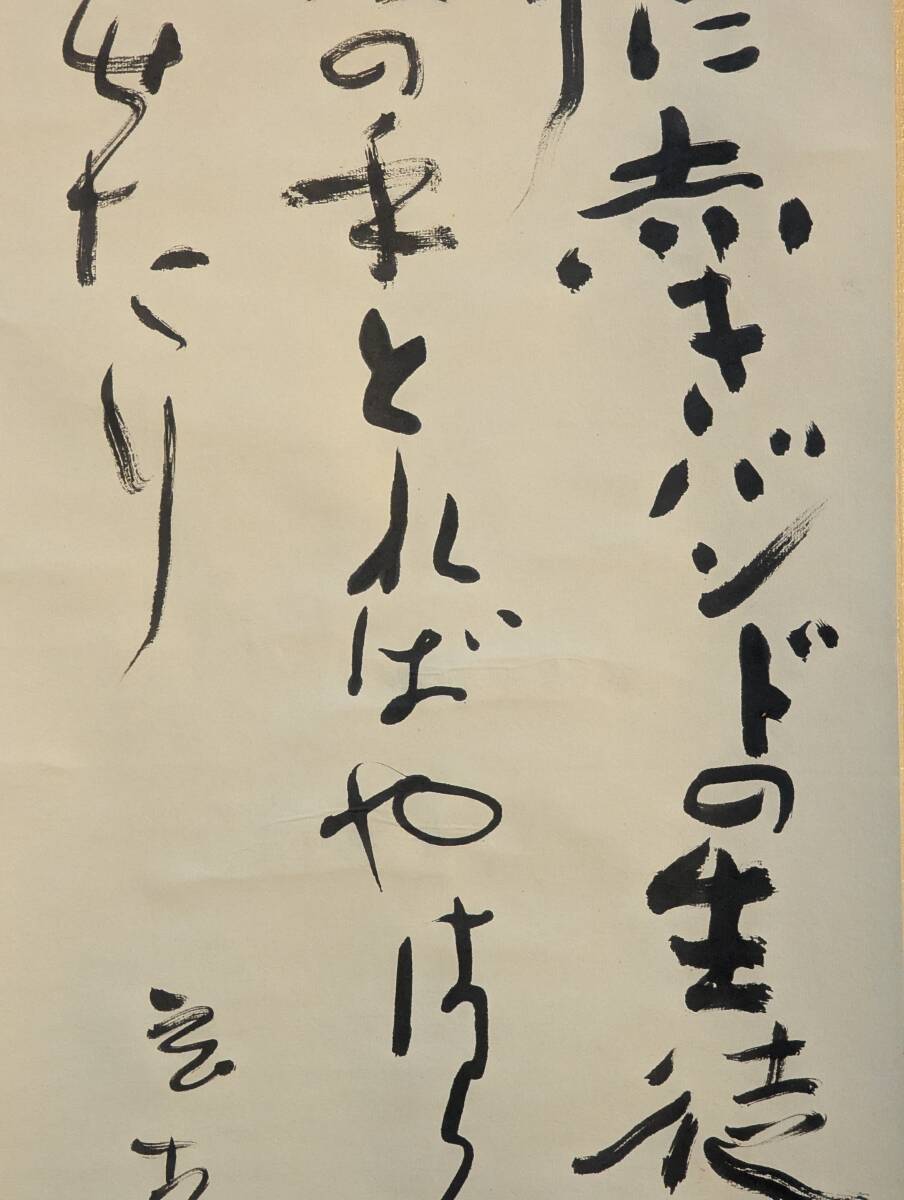 に赤きバンドの生徒
の手とればやはら
せたり